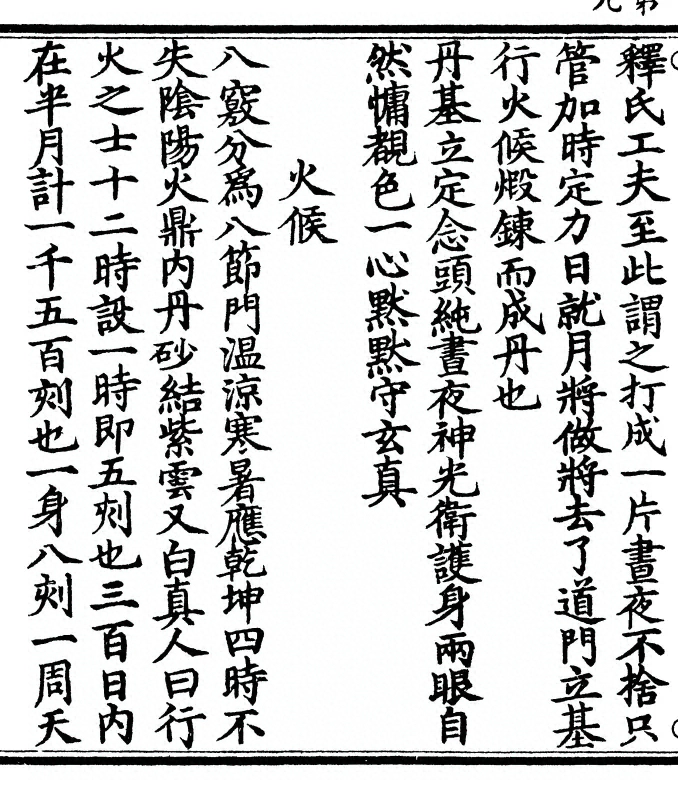 釋氏工夫至此謂之打成一片晝夜不捨只
管加時定力日就月將做將去了道門立基
行火候煅鍊而成丹也
丹基立定念頭純晝夜神光衛護身兩眼自
然慵覩色一心默默守玄真
火候
八竅分為八節門温涼寒暑應乾坤四時不
失陰陽火鼎內丹砂結紫雲又白真人曰行
火之士十二時設一時即五刻也三百日內
在半月計一千五百刻也一身八刻一周天